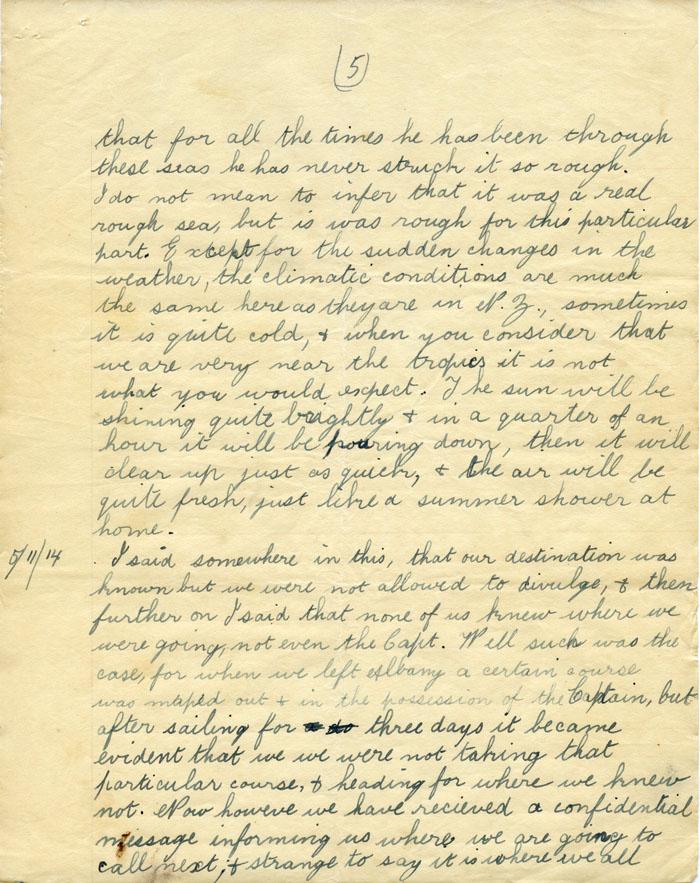 (5)
that for all the times he has been through
these seas he has never struck it so rough.
I do not mean to infer that it was a real
rough sea, but is was rough for this particular
part. Except for the sudden changes in the
weather, the climatic conditions are much
the same here as they are in N.Z., sometimes
it is quite cold, & when you consider that
we are very near the tropics it is not
what you would expect. The sun will be
shining quite brightly & in a quarter of an
hour it will be pouring down, then it will
clear up just as quick, & the air will be
quite fresh, just like a summer shower at
home.
5/11/14 I said somewhere in this, that our destination was
known but we were not allowed to divulge, & then
further on I said that none of us knew where we
were going, not even the Capt. Well such was the
case, for when we left Albany a certain course
was mapped out & in the possession of the Captain, but
after sailing for three days it became
evident that we we were not taking that
particular course, & heading for where we knew
not. Now howeve we have recieved a confidential
message informing us where we are going to
call next, & strange to say it is where we all